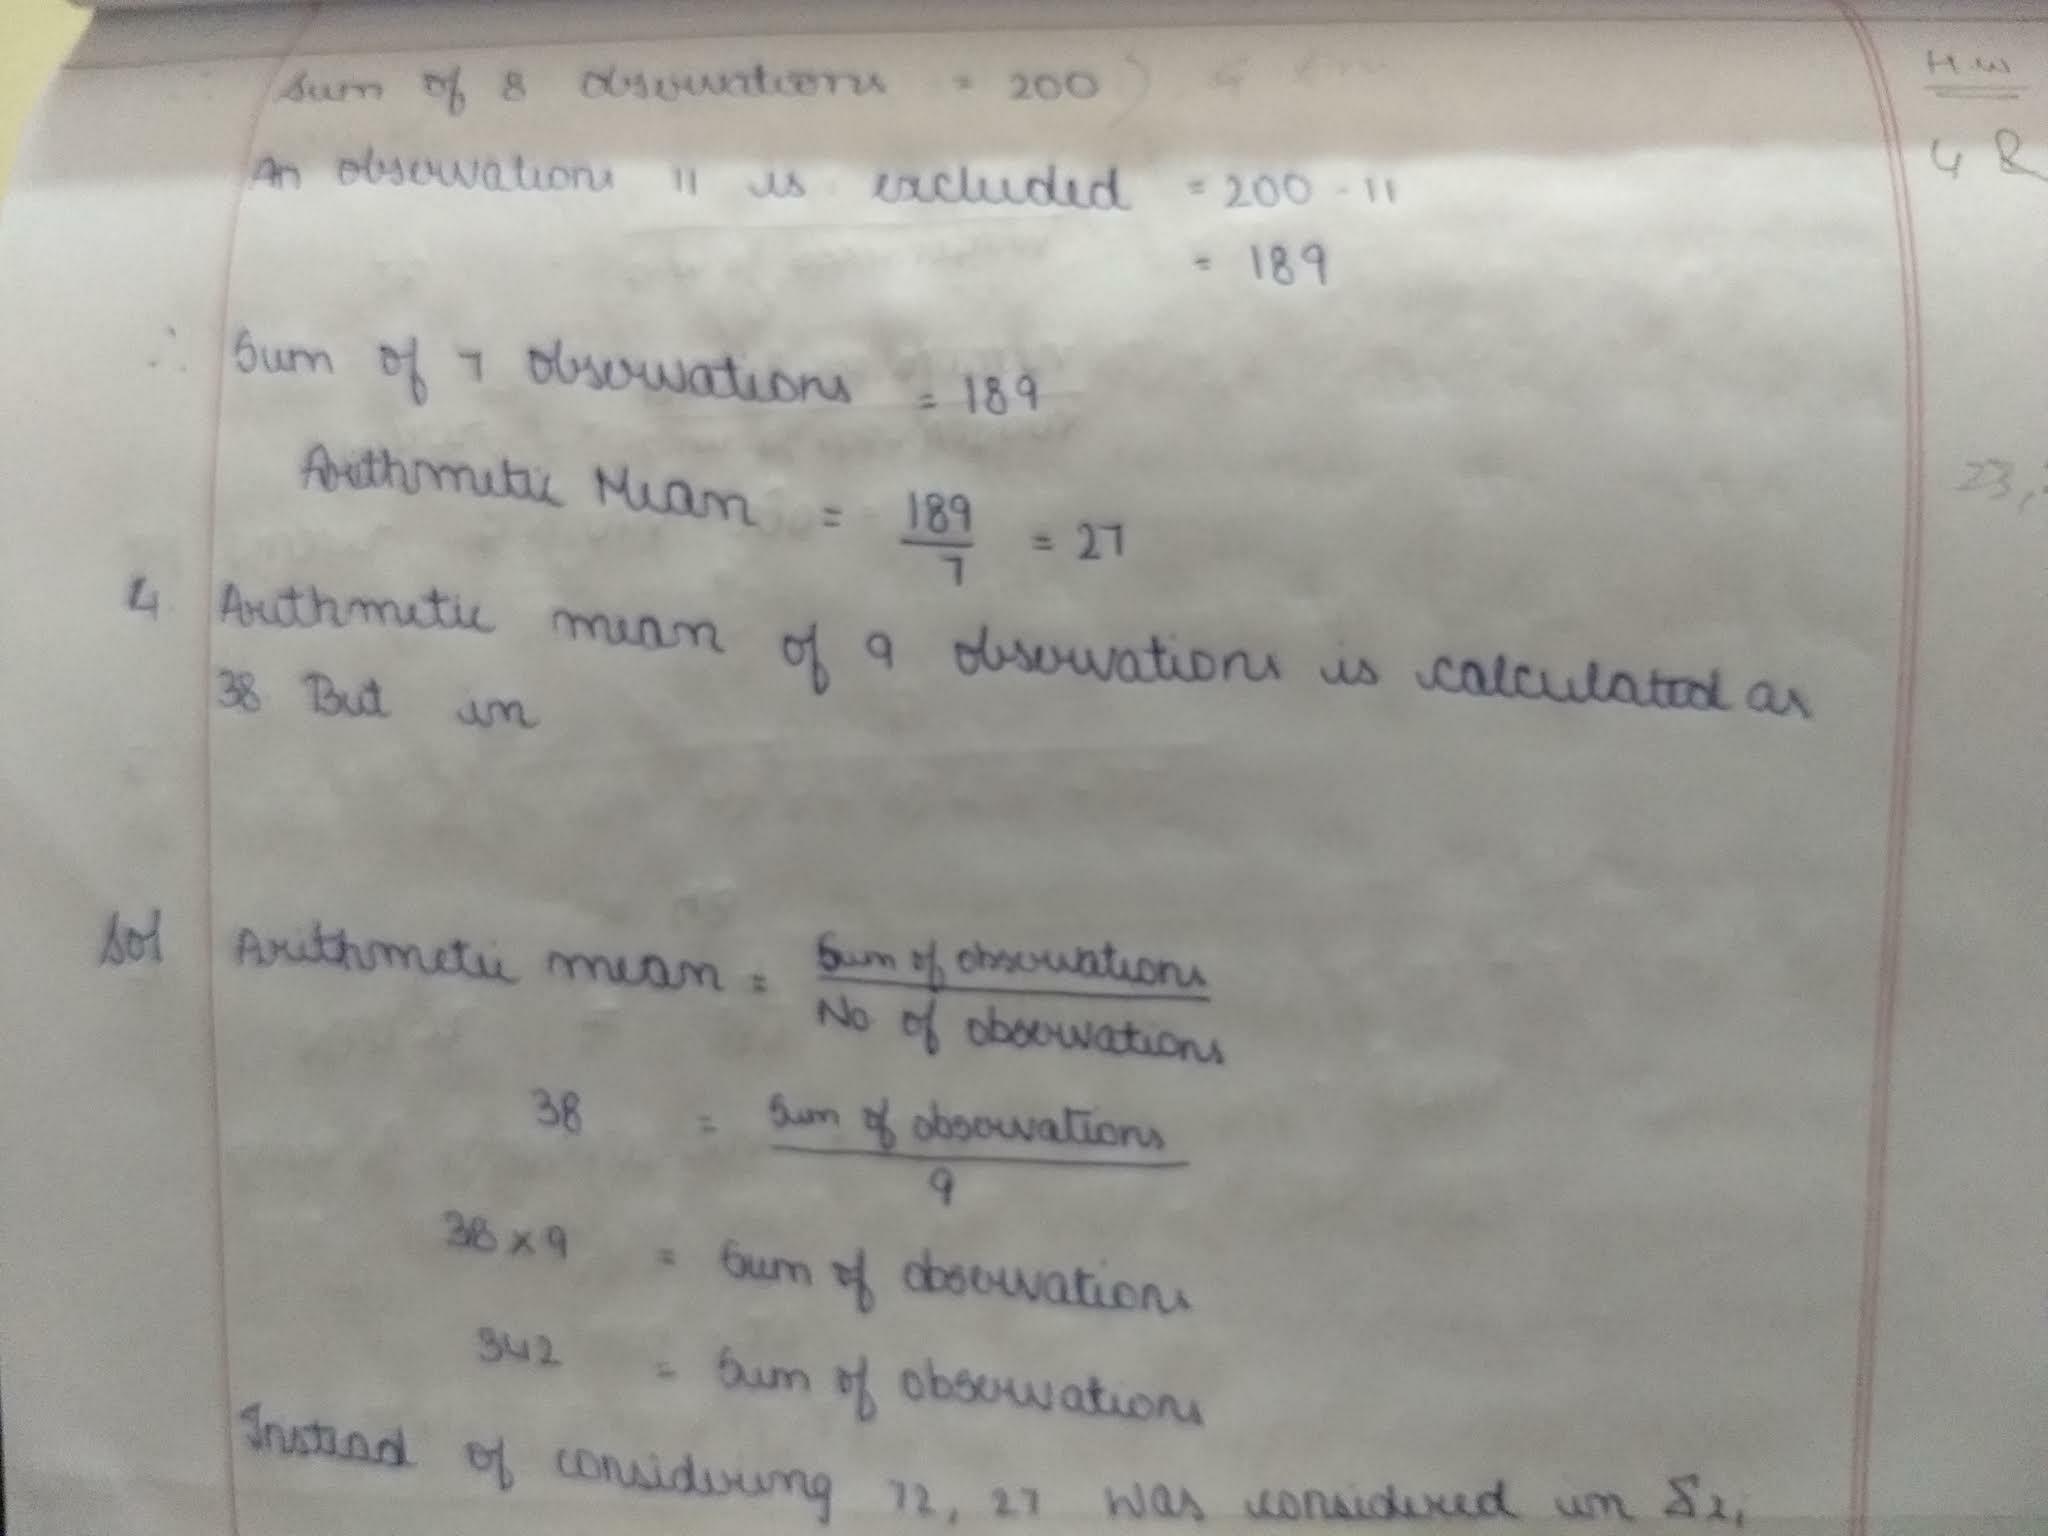 Sum of 8 observations = 200
H.W
An observations 11 is excluded = 200 - 11
4
= 189
∴ Sum of 7 observations = 189
23,
Arithmetic Mean = 189/7 = 27
4. Arithmetic mean of 9 observations is calculated as
38 But in
Sol Arithmetic mean = Sum of observations / No of observations
38 = Sum of observations / 9
38 x 9 = Sum of observations
342 = Sum of observations
Instead of considering 72, 27 was considered in Σxi